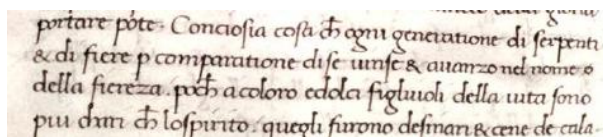 portare pote. Conciosia cosa ch ogni generatione di serpenti
& di fiere p comparatione di se uinse & auanzo nel nome o
della fiereza. poch a coloro e dolci figluioli della uita sono
piu chari ch lo spirito. quegli furono desinari & cene de cala-